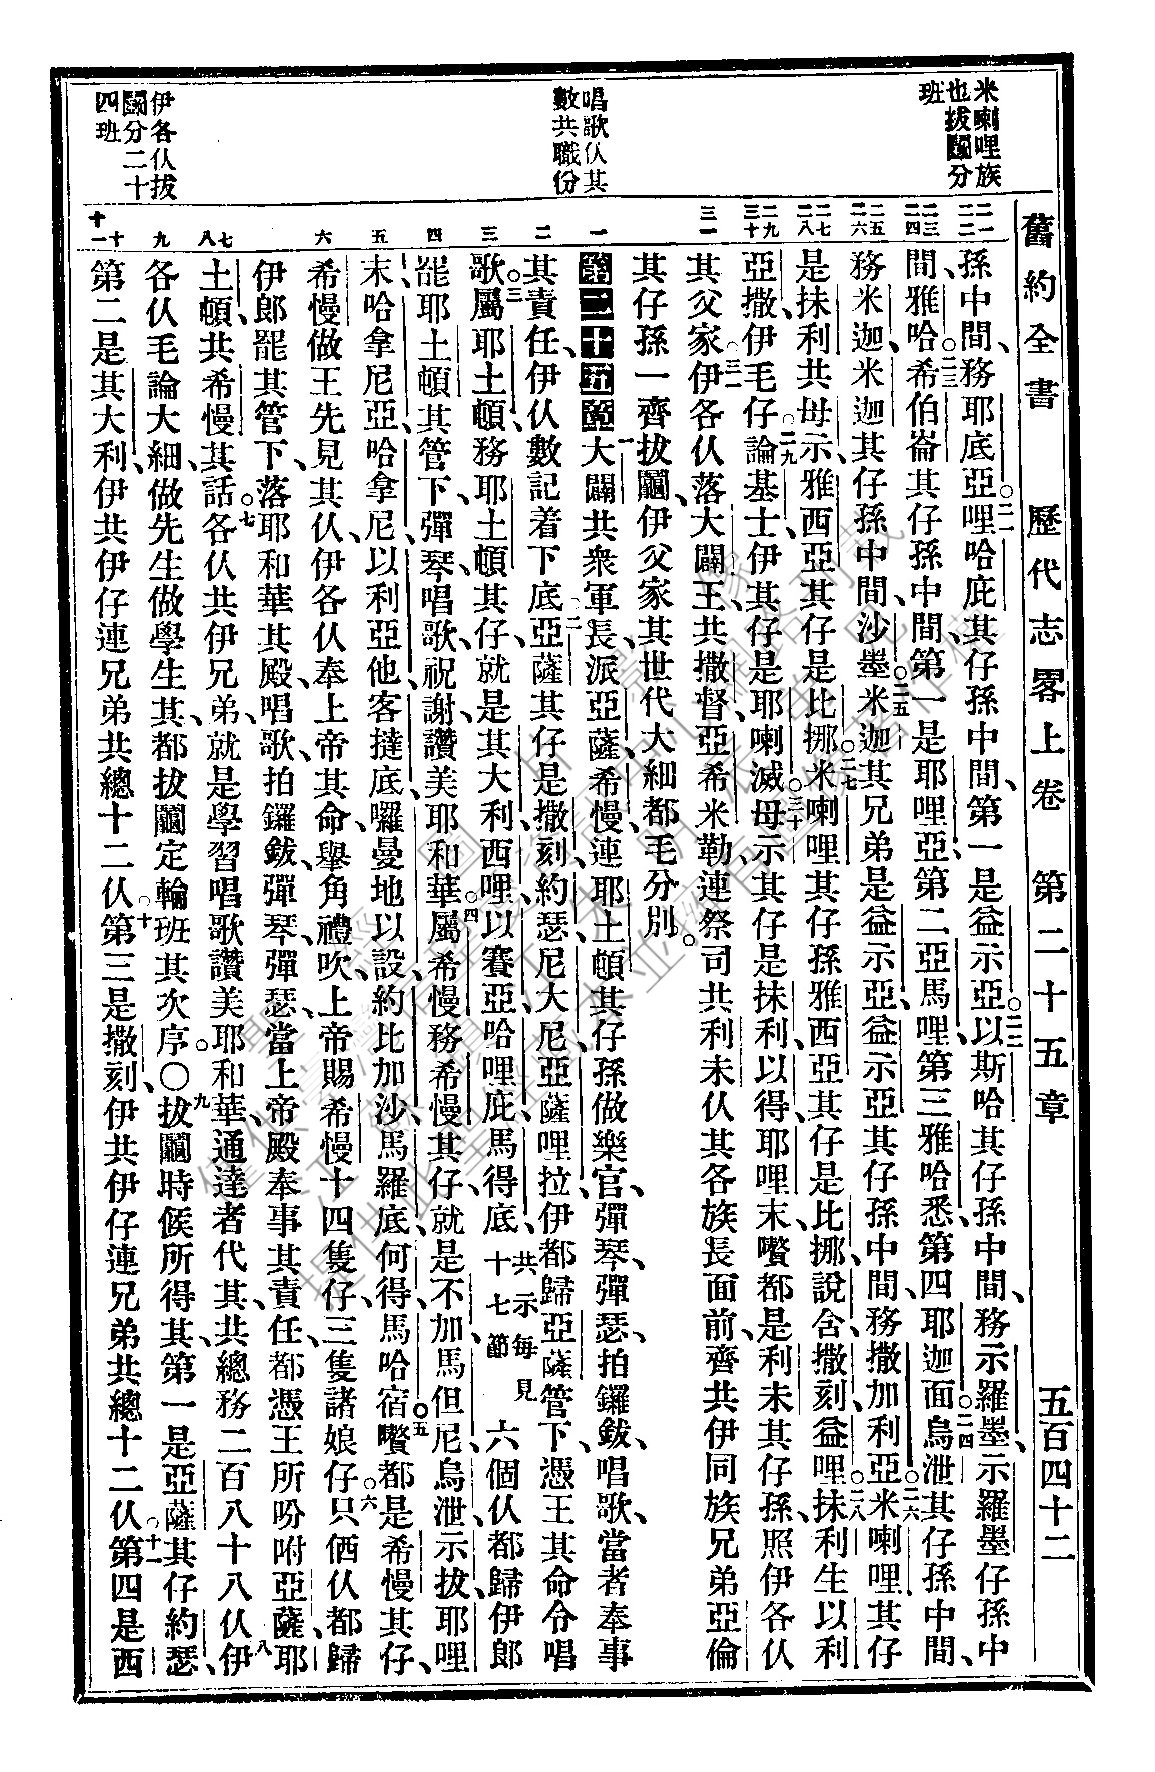 舊約全書 歷代志畧上卷 第二十五章 五百四十二
米喇哩族
也拔鬮分
班
唱歌仈其
數共職份
伊各仈拔
鬮分二十
四班
孫中間、務耶底亞。二一哩哈庇其仔孫中間、第一是益示亞。二二以斯哈其仔孫中間、務示羅墨、示羅墨仔孫中
間、雅哈。二三希伯崙其仔孫中間、第一是耶哩亞、第二亞馬哩、第三雅哈悉、第四耶迦面。二四烏泄其仔孫中間、
務米迦、米迦其仔孫中間、沙墨。二五米迦其兄弟是益示亞、益示亞其仔孫中間、務撒加利亞。二六米喇哩其仔
是抹利共母示、雅西亞其仔是比挪。二七米喇哩其仔孫雅西亞其仔是比挪、說含、撒刻、益哩。二八抹利生以利
亞撒、伊毛仔。二九論基士、伊其仔是耶喇滅。三十母示其仔是抹利、以得、耶哩末、嚽都是利未其仔孫、照伊各仈
其父家。三一伊各仈落大闢王、共撒督、亞希米勒、連祭司共利未仈其各族長面前、齊共伊同族兄弟亞倫
其仔孫一齊拔鬮、伊父家其世代大細都毛分別。
第二十五章 一大闢共衆軍長、派亞薩、希慢、連耶土頓其仔孫做樂官、彈琴、彈瑟、拍鑼鈸、唱歌、當者奉事
其責任、伊仈數記着下底。二亞薩其仔是撒刻、約瑟、尼大尼亞、薩哩拉、伊都歸亞薩管下、憑王其命令唱
歌。三屬耶土頓、務耶土頓其仔、就是其大利、西哩、以賽亞、哈哩庇、馬得底、共示每見十七節六個仈都歸伊郎
罷耶土頓其管下、彈琴唱歌、祝謝讚美耶和華。四屬希慢、務希慢其仔、就是不加、馬但尼、烏泄、示拔、耶哩
末、哈拿尼亞、哈拿尼、以利亞他、客撻底、囉曼地以設、約比加沙、馬羅底、何得、馬哈宿。五嚽都是希慢其仔、
希慢做王先見其仈、伊各仈奉上帝其命、舉角禮吹、上帝賜希慢十四隻仔、三隻諸娘仔。六只㑚仈都歸
伊郎罷其管下、落耶和華其殿、唱歌、拍鑼鈸、彈琴、彈瑟、當上帝殿奉事其責任、都憑王所吩咐亞薩、耶
土頓、共希慢其話。七各仈共伊兄弟、就是學習唱歌讚美耶和華、通達者代其、共總務二百八十八仈。八伊
各仈毛論大細、做先生做學生其、都拔鬮定輪班其次序。〇九拔鬮時候所得其、第一是亞薩其仔約瑟、
第二是其大利、伊共伊仔連兄弟共總十二仈。十第三是撒刻、伊共伊仔連兄弟共總十二仈。十一第四是西